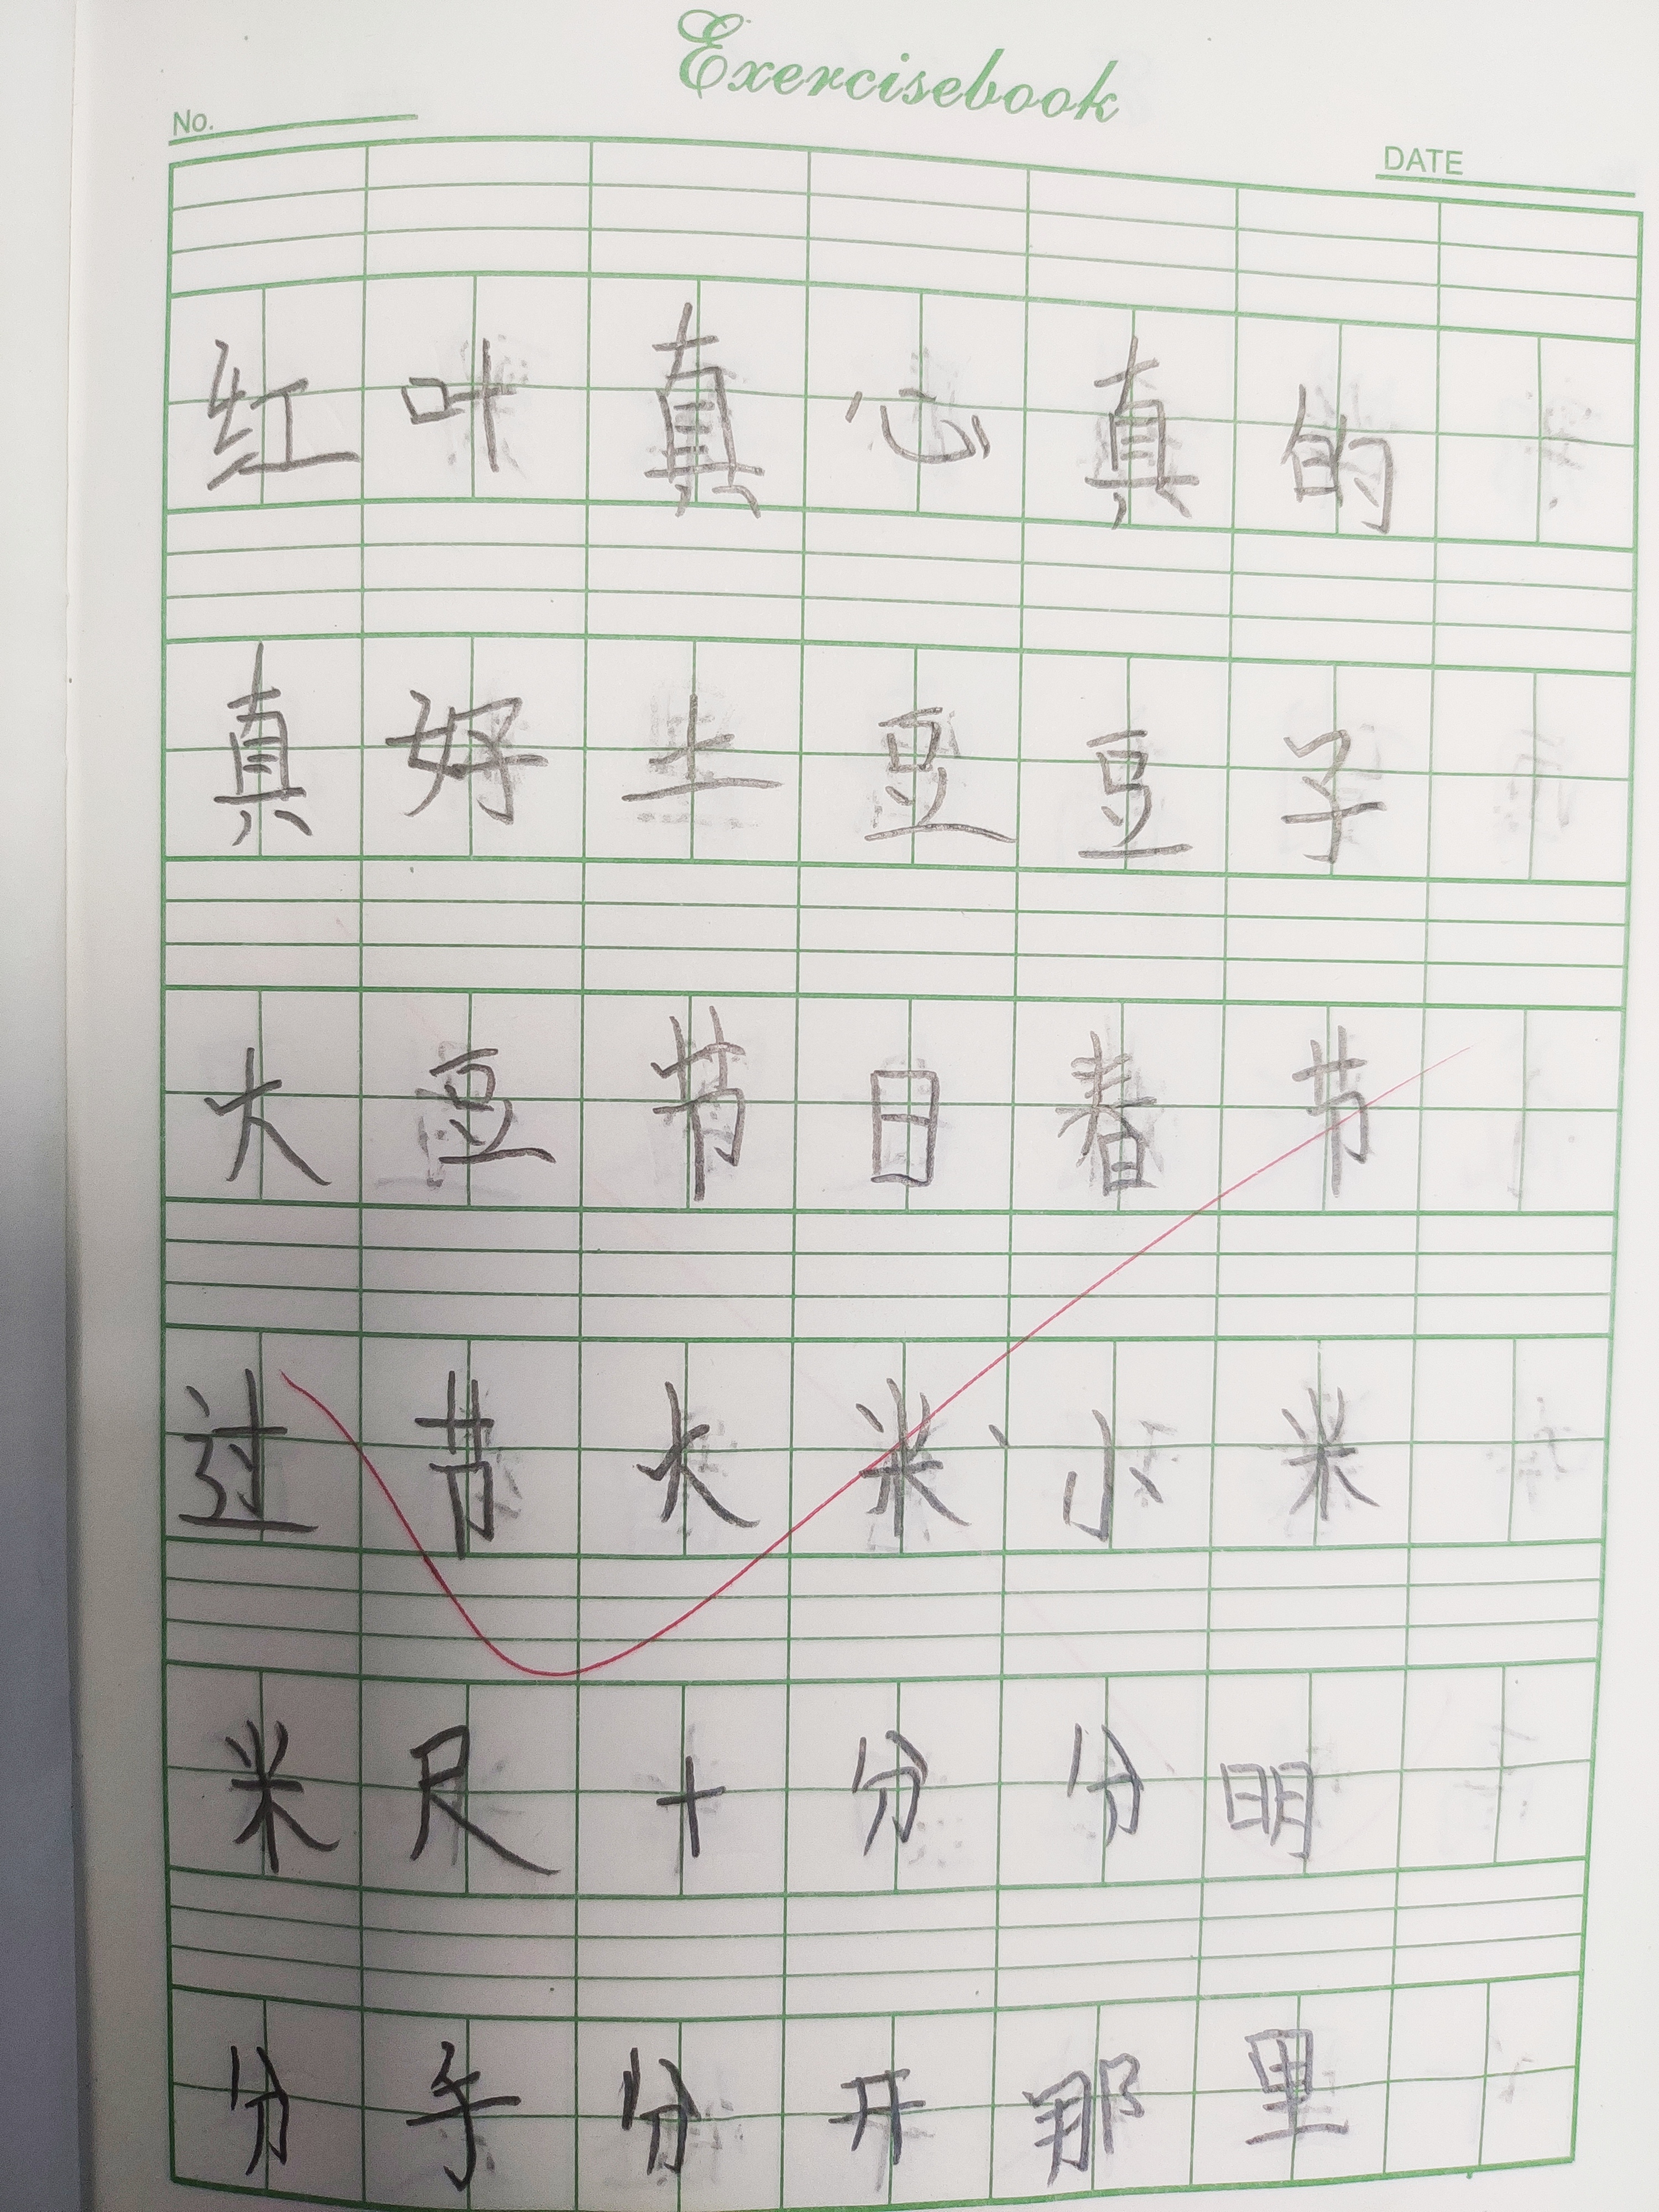 Exercisebook
No.
DATE
红叶真心真的
真好土豆豆子
大豆节日春节
过节大米小米
米尺十分分明
分手分开那里